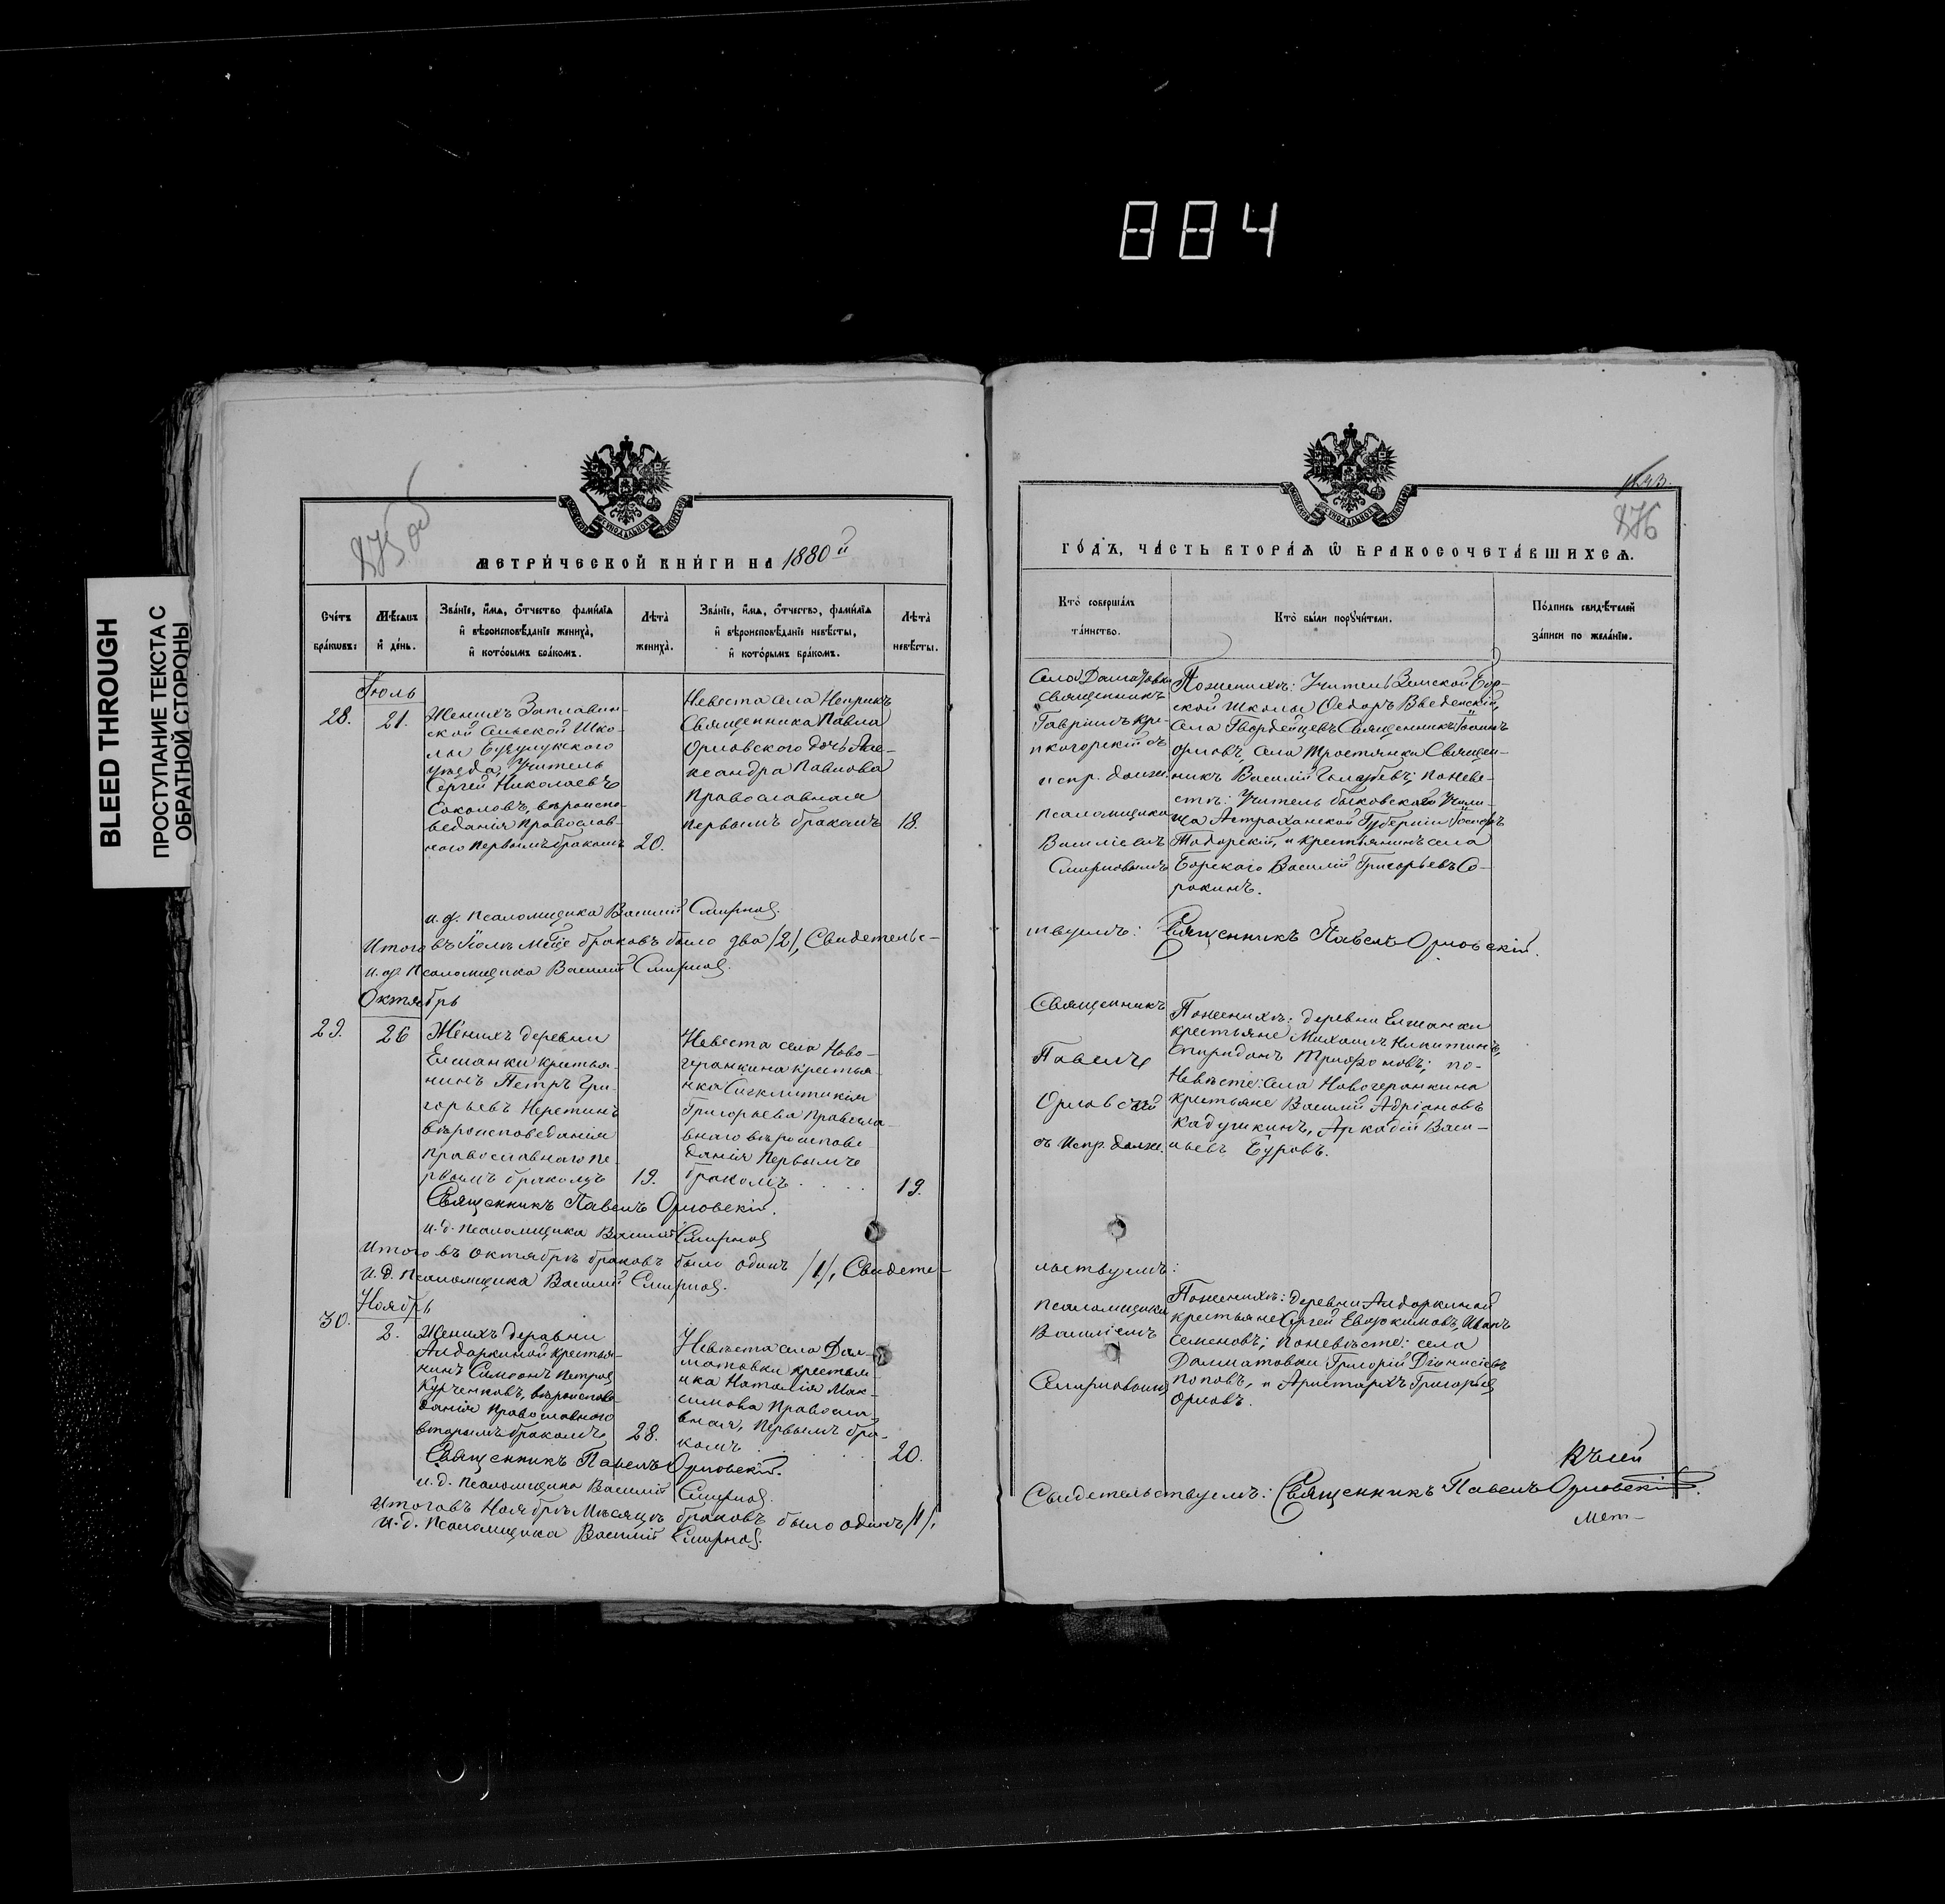 884
BLEED THROUGH
ПРОСТУПАНИЕ ТЕКСТА С
ОБРАТНОЙ СТОРОНЫ
875 об
МЕТРИ́ЧЕСКОЙ КНИ́ГИ НА 1880й
Сче́тъ бра́кωвъ:
Мѣ́сяцъ и҆ де́нь.
Зва́нїе, и҆́мѧ, ѻ҆́тчество, фами́лїѧ и҆ вѣроисповѣ́данїе жениха̀, и҆ кото́рымъ бра́комъ.
Лѣ́та жениха̀.
Зва́нїе, и҆́мѧ, ѻ҆́тчество, фами́лїѧ и҆ вѣроисповѣ́данїе невѣ́сты, и҆ кото́рымъ бра́комъ.
Лѣ́та невѣ́сты.
Іюль
28.
21.
Женихъ Заплавин-
ской Сельской Шко-
лы Бузулукского
уѣзда, Учитель
Сергей Николаевъ
Соколовъ, вѣроиспо-
веданія Православ-
наго Первымъ бракомъ
20.
Невеста села Неприкъ
Священника Павла
Орловского дочь Але-
ксандра Павлова
Православная
Первымъ бракомъ
18.
и. д. Псаломщика Василий Смирнов.
Итого въ Іюлѣ Мцѣ браковъ было два /2/, Свидетельс-
и. д. Псаломщика Василий Смирнов.
Октябрь
29.
26
Женихъ деревни
Елшанки крестья-
нинъ Петръ Гри-
горьевъ Неретинъ
вѣроисповеданія
Православнаго пе-
рвымъ бракомъ
19.
Невеста села Ново-
геранкина крестья-
нка Сигклитикія
Григорьева Правосла-
внаго вѣроиспове
данія Первымъ
бракомъ
19.
Священникъ Павелъ Орловскій.
и. д. Псаломщика Василий Смирнов
Итого въ Октябрѣ браковъ было одинъ /1/, Свидете-
и. д. Псаломщика Василий Смирнов.
Ноябрь
30.
2.
Женихъ деревни
Алдаркиной крестья-
нинъ Симеонъ Петров
Курченковъ, вѣроиспове-
данія Православнаго
вторымъ бракомъ
28.
Невѣста села Дал-
матовки крестьян-
ка Наталія Мак-
симова Правосла
вная, Первымъ бра-
комъ
20.
Священникъ Павелъ Орловскій.
и. д. Псаломщика Василий Смирнов.
Итого въ Ноябрѣ Мѣсяцѣ браковъ было одинъ /1/,
и. д. Псаломщика Василий Смирнов.
876
ГО́ДЪ, ЧА́СТЬ ВТОРА́Ѧ Ѽ БРАКОСОЧЕТА́ВШИХСѦ.
Кто̀ соверша́лъ та́инство.
Кто̀ бы́ли порꙋчи́тели.
По́дпись свидѣ́телей за́писи по жела́нїю.
Села Далматовки
Священникъ
Гавріилъ Кре-
покогорскій съ
испр. должн.
Псаломщика
Василіемъ
Смирновымъ
По женихѣ: Учитель Земской Бор-
ской Школы Ѳедоръ Введенскій,
Села Гвардейцевъ Священникъ Іоаннъ
Орловъ, Села Тростянки Священ-
никъ Василій Голубевъ; по неве-
стѣ: Учитель Быковскаго Учили-
ща Астраханской Губерніи Іосифъ
Тодорскій, и крестьянинъ села
Борскаго Василій Григорьевъ Со-
рокинъ.
твуемъ: Священникъ Павелъ Орловскій.
Священникъ
Павелъ
Орловский
съ Испр. должн.
По женихѣ: деревни Елшанки
крестьяне Михаилъ Никитинъ,
Спиридонъ Трифоновъ; по-
Невѣсте: Села Новогеранкина
крестьяне Василий Адріановъ
Кадушкинъ, Аркадій Васи-
льевъ Буровъ.
льствуемъ:
Псаломщика
Василіемъ
Смирновымъ
По женихѣ: деревни Алдаркиной
крестьяне Сергей Евдокимовъ, Иванъ
Семеновъ; по невѣсте: села
Далматовки Григорій Діонисіевъ
Поповъ, и Аристархъ Григорьев
Орловъ.
Къ сей
Свидетельствуемъ: Священникъ Павелъ Орловскій.
Мет-